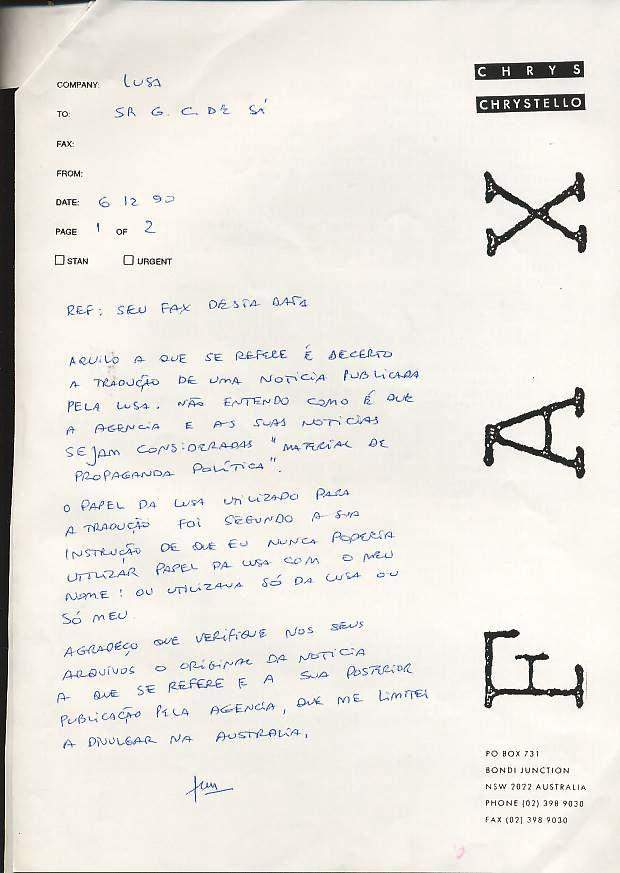 CHRYS
CHRYSTELLO
COMPANY: LUSA
TO: SR G. C. DE SÁ
FAX:
FROM:
DATE: 6 12 90
PAGE 1 OF 2
STAN URGENT
FAX
REF: SEU FAX DESTA DATA
AQUILO A QUE SE REFERE É DECERTO
A TRADUÇÃO DE UMA NOTÍCIA PUBLICADA
PELA LUSA. NÃO ENTENDO COMO É QUE
A AGENCIA E AS SUAS NOTÍCIAS
SEJAM CONSIDERADAS "MATERIAL DE
PROPAGANDA POLÍTICA".
O PAPEL DA LUSA UTILIZADO PARA
A TRADUÇÃO FOI SEGUNDO A SUA
INSTRUÇÃO DE QUE EU NUNCA PODERIA
UTILIZAR PAPEL DA LUSA COM O MEU
NOME! OU UTILIZAVA SÓ DA LUSA OU
SÓ MEU
AGRADEÇO QUE VERIFIQUE NOS SEUS
ARQUIVOS O ORIGINAL DA NOTÍCIA
A QUE SE REFERE E A SUA POSTERIOR
PUBLICAÇÃO PELA AGENCIA, QUE ME LIMITEI
A DIVULGAR NA AUSTRALIA.
PO BOX 731
BONDI JUNCTION
NSW 2022 AUSTRALIA
PHONE (02) 398 9030
FAX (02) 398 9030